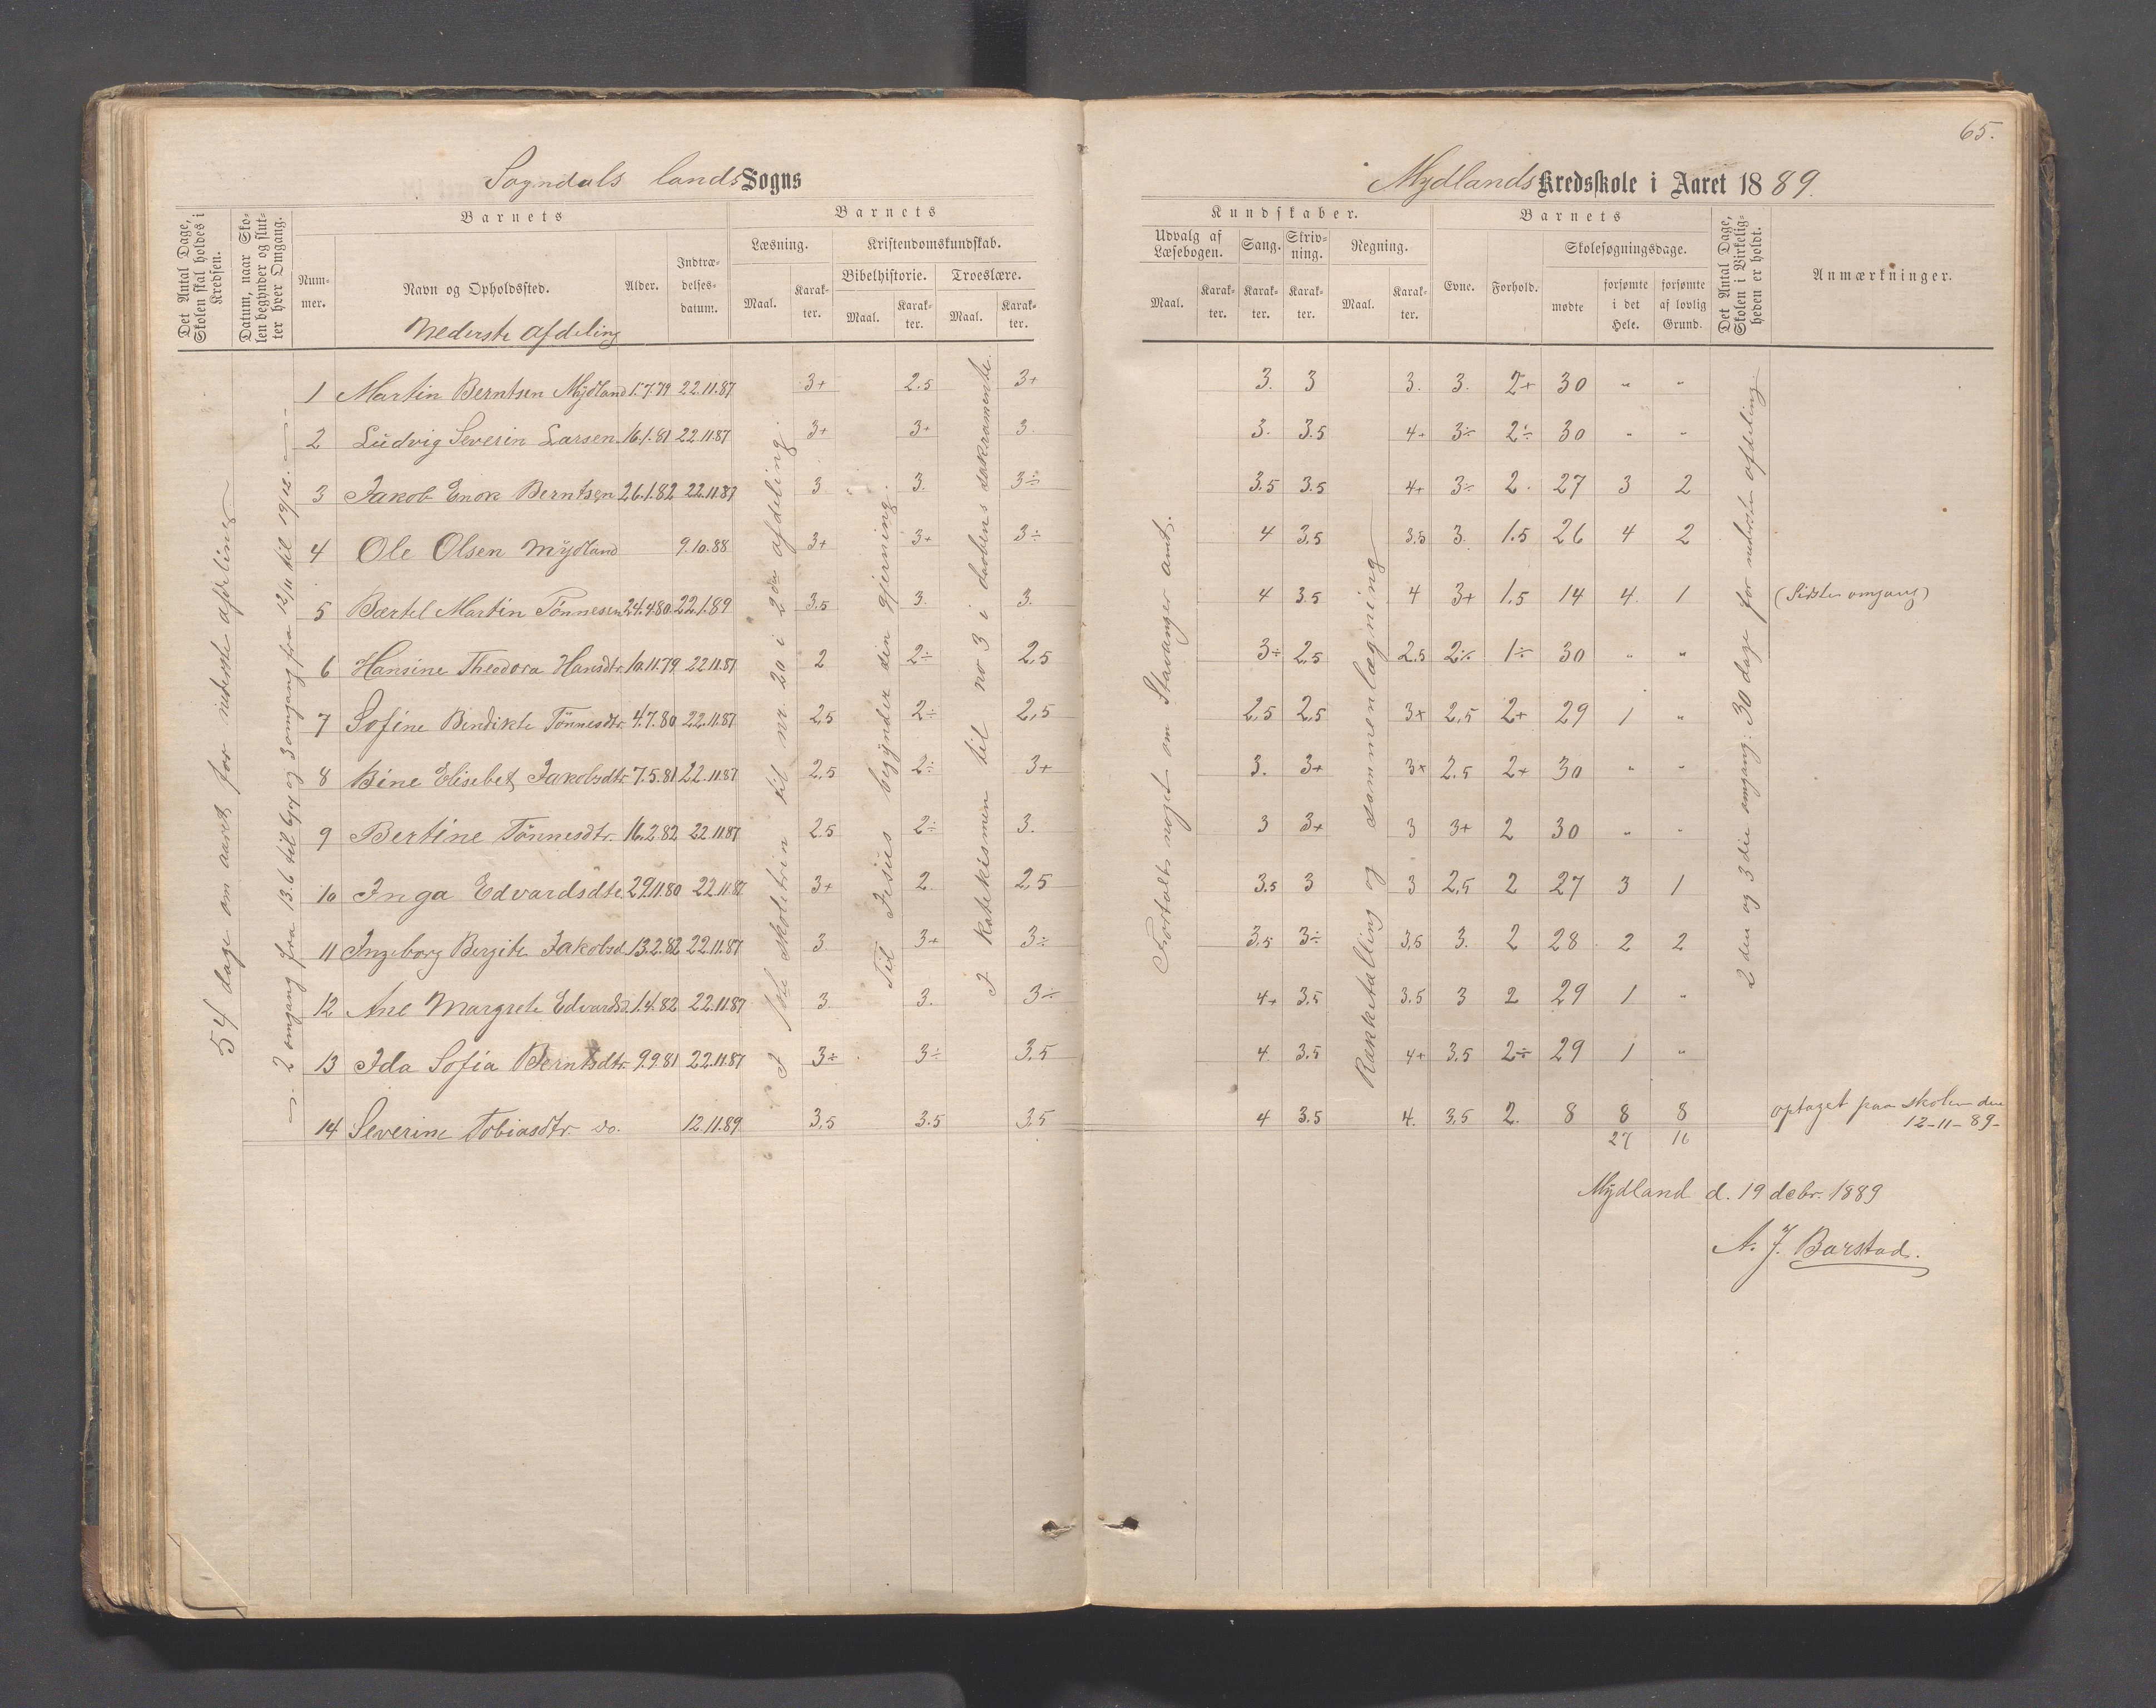 65.
Sogndals lands Sogns
Mydlands Kredsskole i Aaret 1889.
Det Antal Dage, Skolen skal holdes i Kredsen.
Datum, naar Skolen begynder og slutter hver Omgang.
Barnets
Nummer.
Navn og Opholdssted.
Alder.
Indtrædelsesdatum.
Barnets
Læsning.
Maal.
Karakter.
Kristendomskundskab.
Bibelhistorie.
Maal.
Karakter.
Troeslære.
Maal.
Karakter.
Kundskaber.
Udvalg af Læsebogen.
Maal.
Karakter.
Sang.
Karakter.
Skrivning.
Karakter.
Regning.
Maal.
Karakter.
Barnets
Evne.
Forhold.
Skolesøgningsdage.
mødte
forsømte i det Hele.
forsømte af lovlig Grund.
Det Antal Dage, Skolen i Virkeligheden er holdt.
Anmærkninger.
Nederste afdeling
54 dage om aaret for nederste afdeling
2 omgang fra 13.6 til 6/7 og 3 omgang fra 12/11 til 19/12.
I 1ste skoletrin til nr. 20 i 2den afdeling.
Til Jesus begynder sin gjerning.
I katekismen til no 3 i daabens sakramente.
Fortalt noget om Stavanger amt.
Rækketælling og sammenlægning
2den og 3die omgang: 30 dage for nederste afdeling
1 Martin Berntsen Mydland 15.7.79 22.11.87 3+ 2.5 3+ 3. 3 3. 3. 2+ 30 " "
2 Ludvig Severin Larsen 16.1.81 22.11.87 3+ 3+ 3. 3. 3.5 4+ 3÷ 2÷ 30 " "
3 Jakob Enok Berntsen 26.1.82 22.11.87 3 3. 3÷ 3.5 3.5 4+ 3÷ 2. 27 3 2
4 Ole Olsen Mydland 9.10.88 3+ 3+ 3÷ 4 3.5 3.5 3. 1.5 26 4 2
5 Bærtel Martin Tønnesen 24.4.80 22.1.89 3.5 3. 3. 4 3.5 4 3+ 1.5 14 4 1 (Sidste omgang)
6 Hansine Theodora Hansdtr. 10.11.79 22.11.87 2 2÷ 2,5 3÷ 2,5 2.5 2÷ 1÷ 30 " "
7 Sofine Bendikte Tønnesdtr. 4.7.80 22.11.87 2,5 2÷ 2,5 2,5 2,5 3+ 2,5 2+ 29 1 "
8 Bine Elisebet Jakobsdtr. 7.5.81 22.11.87 2,5 2÷ 3+ 3. 3+ 3+ 2.5 2+ 30 " "
9 Bertine Tønnesdtr. 16.2.82 22.11.87 2.5 2÷ 3. 3 3+ 3 3+ 2 30 " "
10 Inga Edvardsdtr. 29.11.80 22.11.87 3+ 2 2,5 3.5 3 3 2,5 2 27 3 1
11 Ingeborg Bergite Jakobsd. 13.2.82 22.11.87 3. 3+ 3÷ 3.5 3÷ 3,5 3. 2 28 2 2
12 Ane Margrete Edvardsd. 1.4.82 22.11.87 3 3. 3÷ 4+ 3.5 3.5 3 2 29 1 "
13 Ida Sofia Berntsdtr. 9.9.81 22.11.87 3÷ 3÷ 3.5 4 3.5 4+ 3,5 2÷ 29 1 "
14 Severine Tobiasdtr. do. 12.11.89 3,5 3.5 3,5 4 3.5 4. 3,5 2. 8 8 8 optaget paa skolen den
12-11-89-
27 16
Mydland d. 19 debr. 1889
A. J. Barstad.